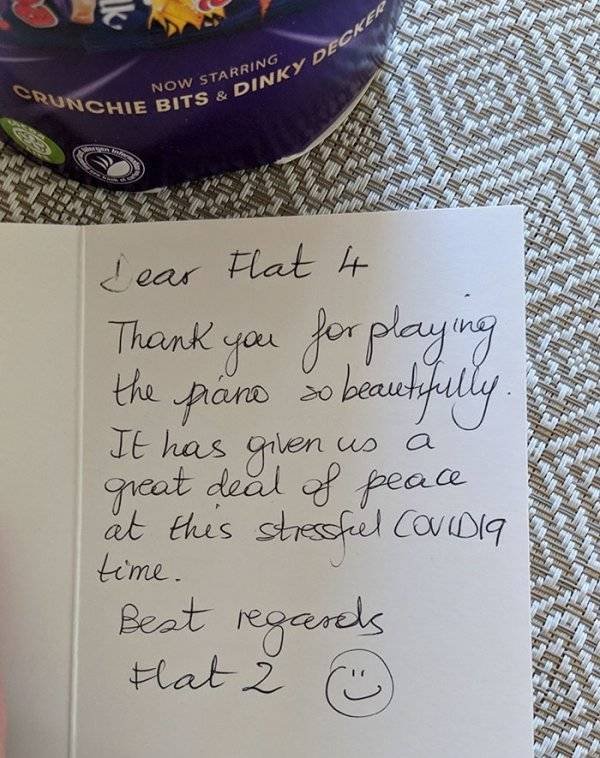 lk
NOW STARRING
CRUNCHIE BITS & DINKY DECKER
Dear Flat 4
Thank you for playing
the piano so beautifully.
It has given us a
great deal of peace
at this stressful COVID19
time.
Best regards
Flat 2